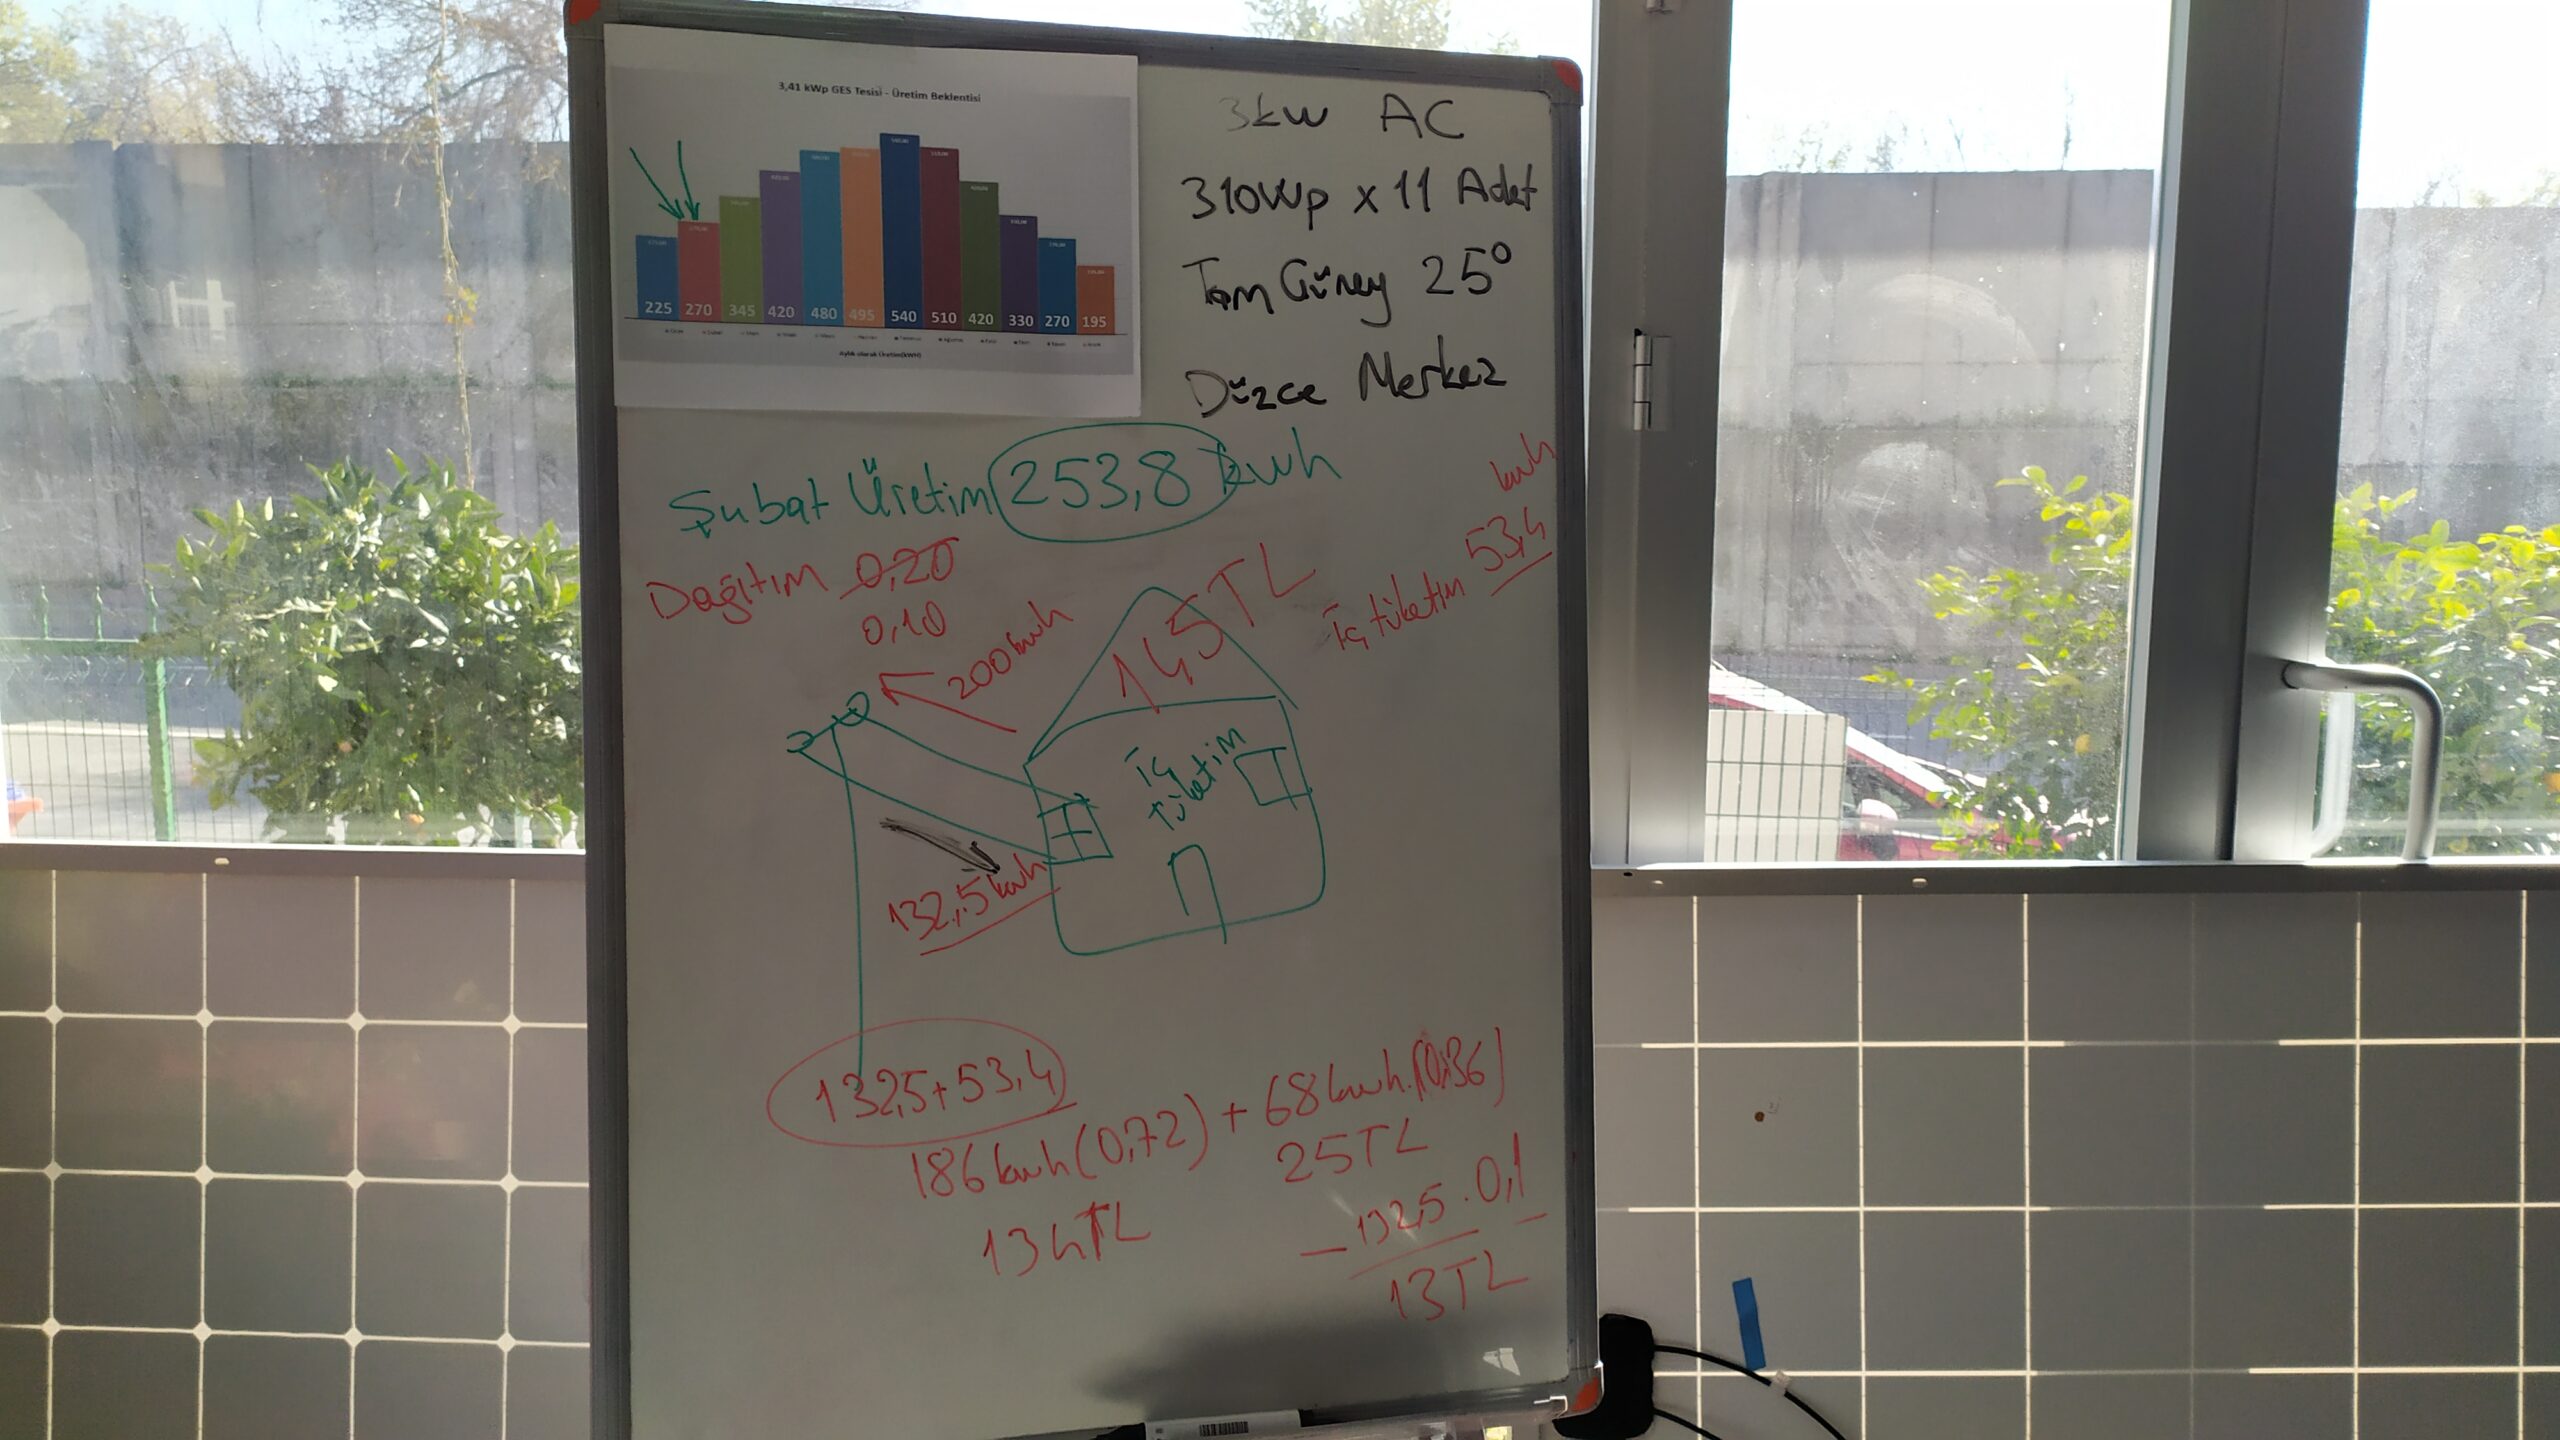 3,41 kWp GES Tesisi - Üretim Beklentisi
225 270 345 420 480 495 540 510 420 330 270 195
Aylık olarak Üretim(kWH)
3kw AC
310Wp x 11 Adet
Tam Güney 25°
Düzce Merkez
Şubat Üretim 253,8 kwh
Dağıtım 0,20
0,10
200 kwh
145 TL
İç tüketim 53,4 kwh
İç tüketim
132,5 kwh
132,5 + 53,4
186 kwh (0,72) + 68 kwh. (0,36)
134 TL
25 TL
- 132,5 . 0,1
13 TL